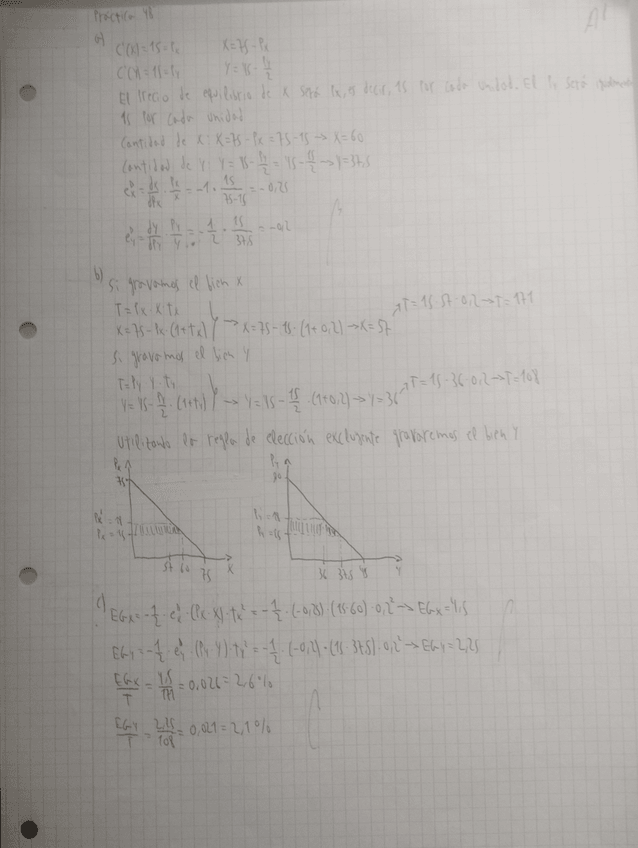 Práctica 4b
A1
a) C'(X)=15=Px X=75-Px
C'(Y)=15=Py Y=45-Py/2
El precio de equilibrio de X será Px, es decir, 15 por cada unidad. El Py será igualmente
15 por cada unidad
Cantidad de X: X=75-Px=75-15→X=60
Cantidad de Y: Y=45-Py/2=45-15/2→Y=37,5
e^D_X= dx/dPx · Px/X =-1· 15/75-15 =-0,25
e^D_Y= dy/dPy · Py/Y =- 1/2 · 15/37,5 =-0,2
b) Si gravamos el bien X
T=Px·X·tx
X=75-Px·(1+tx) → X=75-15·(1+0,2)→X=57 ↗T=15·57·0,2→T=171
Si gravamos el bien Y
T=Py·Y·ty
Y=45-Py/2·(1+ty) → Y=45-15/2·(1+0,2)→Y=36 ↗T=15·36·0,2→T=108
Utilizando la regla de elección excluyente gravaremos el bien Y
Px
75
Px'=18
Px=15
57 60 75 X
Py
90
Py'=18
Py=15
36 37,5 45 Y
c) EGx=-1/2·e^D_x·(Px·X)·tx²=-1/2·(-0,25)·(15·60)·0,2²→EGx=4,5
EGy=-1/2·e^D_y·(Py·Y)·ty²=-1/2·(-0,2)·(15·37,5)·0,2²→EGy=2,25
EGx/T=4,5/171=0,026=2,6%
EGy/T=2,25/108=0,021=2,1%